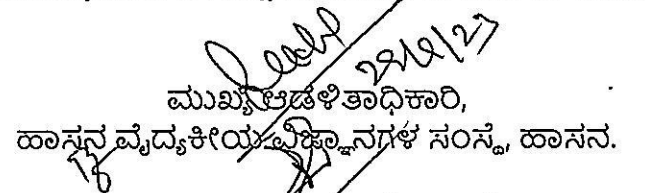 ಮುಖ್ಯ ಆಡಳಿತಾಧಿಕಾರಿ,
ಹಾಸನ ವೈದ್ಯಕೀಯ ವಿಜ್ಞಾನಗಳ ಸಂಸ್ಥೆ, ಹಾಸನ.